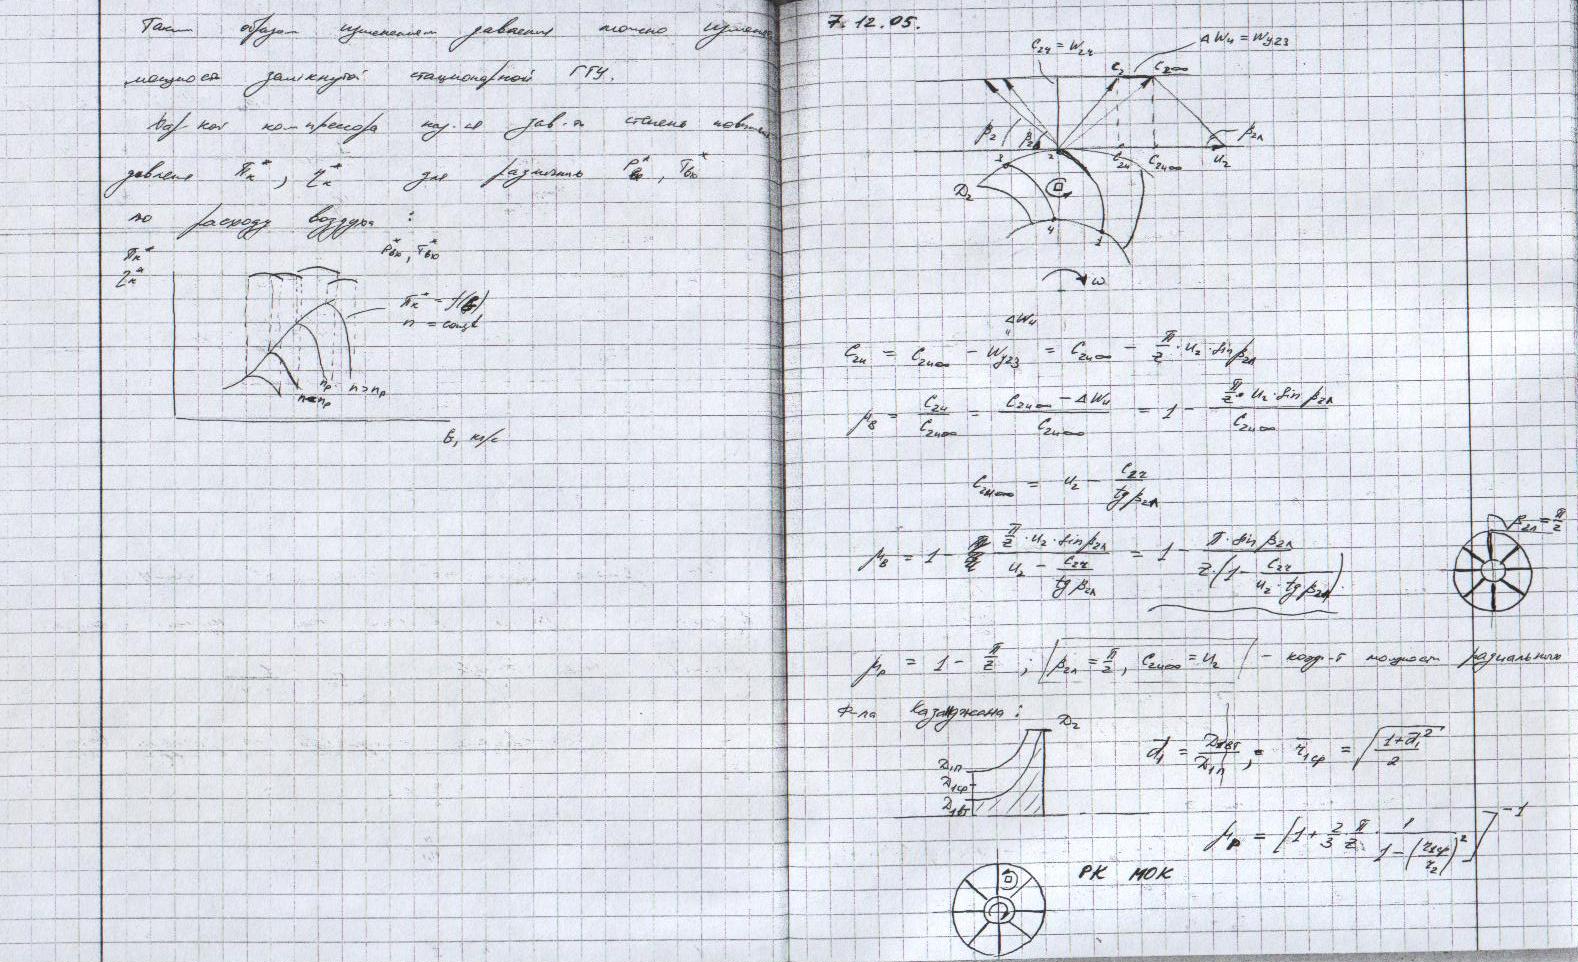 Таким образом изменением давления можно изменять
мощность замкнутой стационарной ГТУ.
Хар-кой компрессора наз-ся зав-ть степень повыш
давления πк*, ηк* для различных Pвх*, Tвх*
по расходу воздуха:
πк*
ηк*
Pвх*, Tвх*
πк* = f(G)
n = const
nр
n > nр
n < nр
G, кг/с
7.12.05.
C2r = W2r
ΔWu = Wуз3
C2
C2∞
β2
β2л
β2л
C2u
C2u∞
u2
D2
2
3
4
1
ω
ΔWu
C2u = C2u∞ − Wуз3 = C2u∞ − π/z · u2 · sin β2л
μв = C2u/C2u∞ = (C2u∞ − ΔWu)/C2u∞ = 1 − (π/z · u2 · sin β2л)/C2u∞
C2u∞ = u2 − C2r/tg β2л
μв = 1 − (π/z · u2 · sin β2л)/(u2 − C2r/tg β2л) = 1 − (π · sin β2л)/(z · (1 − C2r/(u2 · tg β2л)))
β2л = π/2
μр = 1 − π/z ; β2л = π/2, C2u∞ = u2 – коэф-т мощности радиального
Ф-ла Казанджана:
D2
D1п
D1ср
D1вт
d̄1 = D1вт/D1п ; r̄1ср = √((1 + d̄1²)/2)
μр = [1 + 2/3 · π/z · 1/(1 − (r1ср/r2)²)]⁻¹
РК МОК